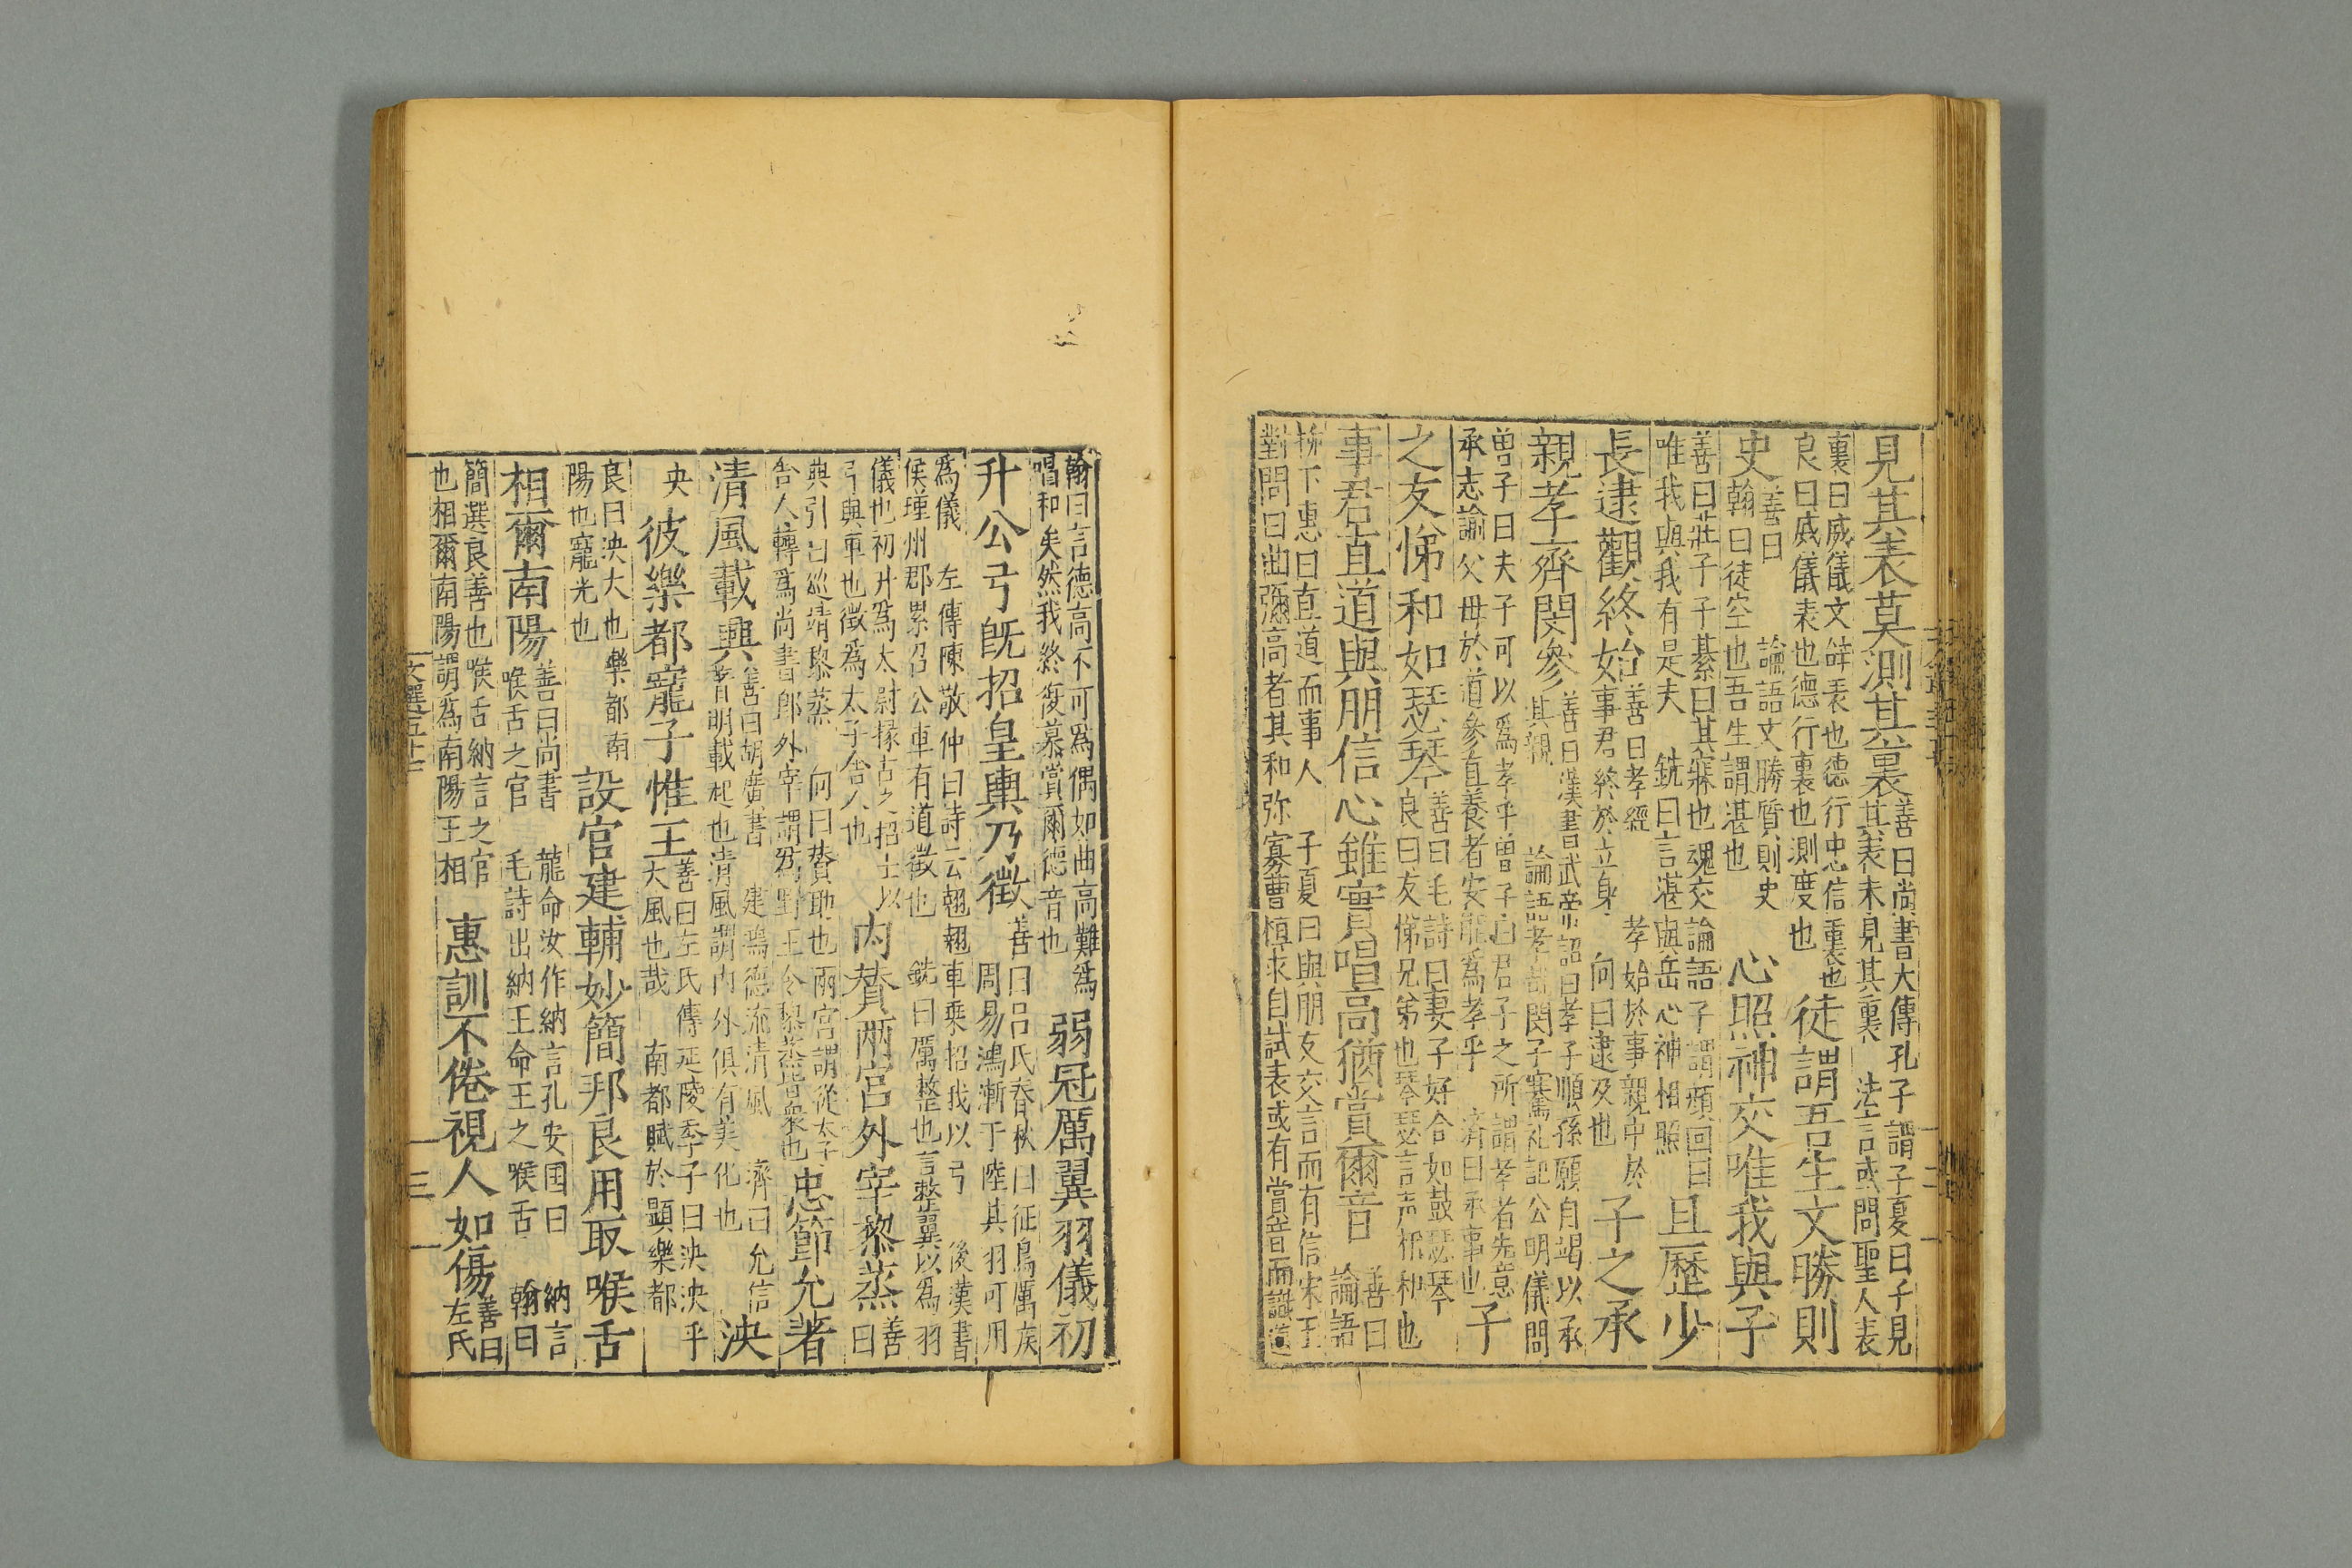 見其表莫測其裏善曰尚書大傳孔子謂子夏曰子見
其表未見其裏法言或問聖人表
裏曰威儀文辭表也德行忠信裏也
良曰威儀表也德行裏也測度也
徒謂吾生文勝則
史善曰論語文勝質則史
翰曰徒空也吾生謂湛也
心照神交唯我與子
善曰莊子子綦曰其寐也魂交論語子謂顔回曰
唯我與我有是夫銑曰言湛與岳心神相照
且歷少
長逮觀終始善曰孝經孝始於事親中於
事君終於立身向曰逮及也
子之承
親孝齊閔參善曰漢書武帝詔曰孝子順孫願自竭以承
其親論語孝哉閔子騫礼記公明儀問
曽子曰夫子可以爲孝乎曽子曰君子之所謂孝者先意
承志諭父母於道參直養者安能爲孝乎濟曰承事也
子
之友悌和如瑟琴善曰毛詩曰妻子好合如鼓瑟琴
良曰友悌兄弟也琴瑟言声相和也
事君直道與朋信心雖實唱高猶賞爾音善曰
論語
栁下惠曰直道而事人子夏曰與朋友交言而有信宋玉
對問曰曲彌高者其和弥寡曹植求自試表或有賞音而識道
翰曰言德高不可爲偶如曲高難爲
唱和矣然我終復慕賞爾德音也
弱冠厲翼羽儀初
升公弓旣招皇輿乃徵善曰吕氏春秋曰征鳥厲疾
周易鴻漸于陸其羽可用
爲儀左傳陳敬仲曰詩云翹翹車乘招我以弓後漢書
侯瑾州郡累召公車有道徵也銑曰厲整也言整翼以爲羽
儀也初升爲太尉掾古之招士以
弓與車也徵爲太子舍人也
内贊兩宮外宰黎蒸善
曰
典引曰巡靖黎蒸向曰贊助也兩宮謂從太子
舍人轉爲尚書郎外宰謂爲野王令黎蒸皆衆也
忠節允著
清風載興善曰胡廣書建爲德流清風濟曰允信
著明載起也清風謂内外俱有美化也
泱
泱彼樂都寵子惟王善曰左氏傳延陵季子曰泱泱乎
大風也哉南都賦於顯樂都
良曰泱大也樂都南
陽也寵光也
設官建輔妙簡邦良用取喉舌
相爾南陽善曰尚書龍命汝作納言孔安国曰納言
喉舌之官毛詩出納王命王之喉舌翰曰
簡選良善也喉舌納言之官
也相爾南陽謂爲南陽王相
惠訓不倦視人如傷善曰
左氏
文選五十七
三